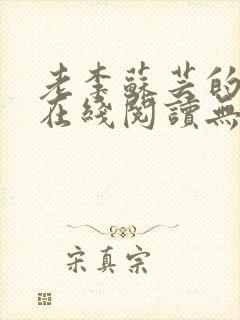 老李蘇芸的
在綫閱讀無
宋真宗